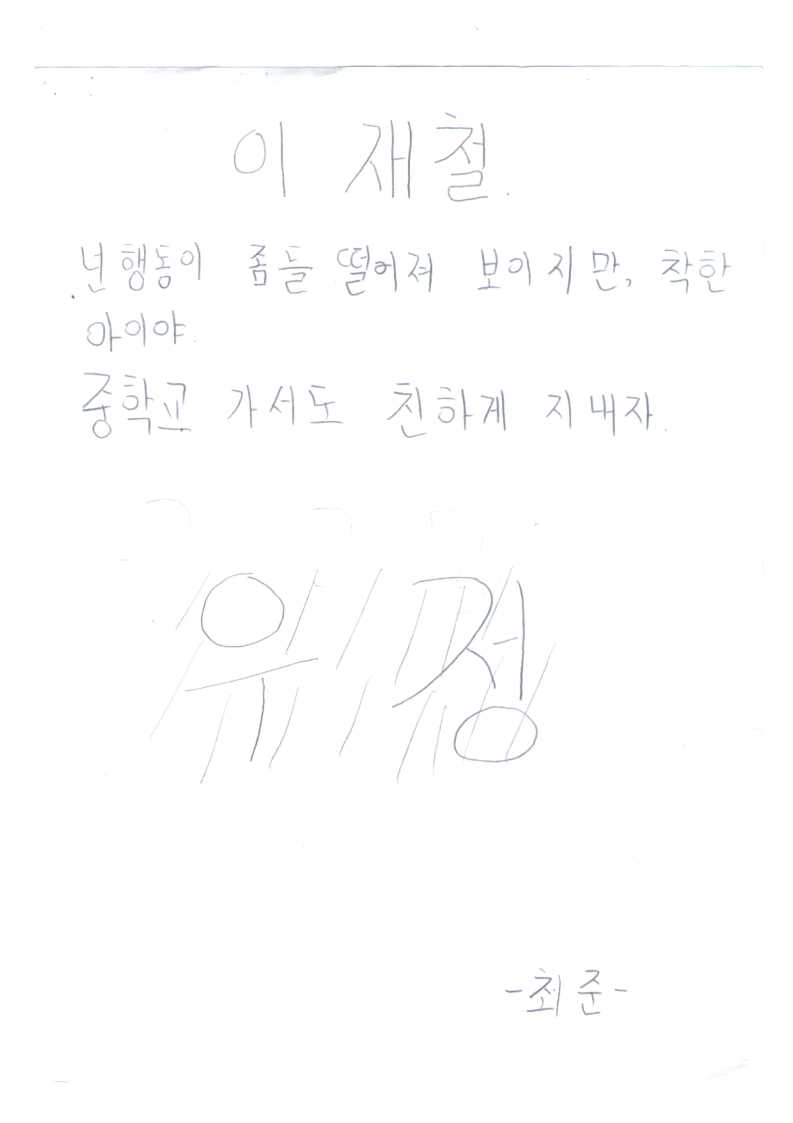 이 재철.
넌 행동이 좀들 떨어져 보이지만, 착한
아이야.
중학교 가서도 친하게 지내자.
우정
-최준-